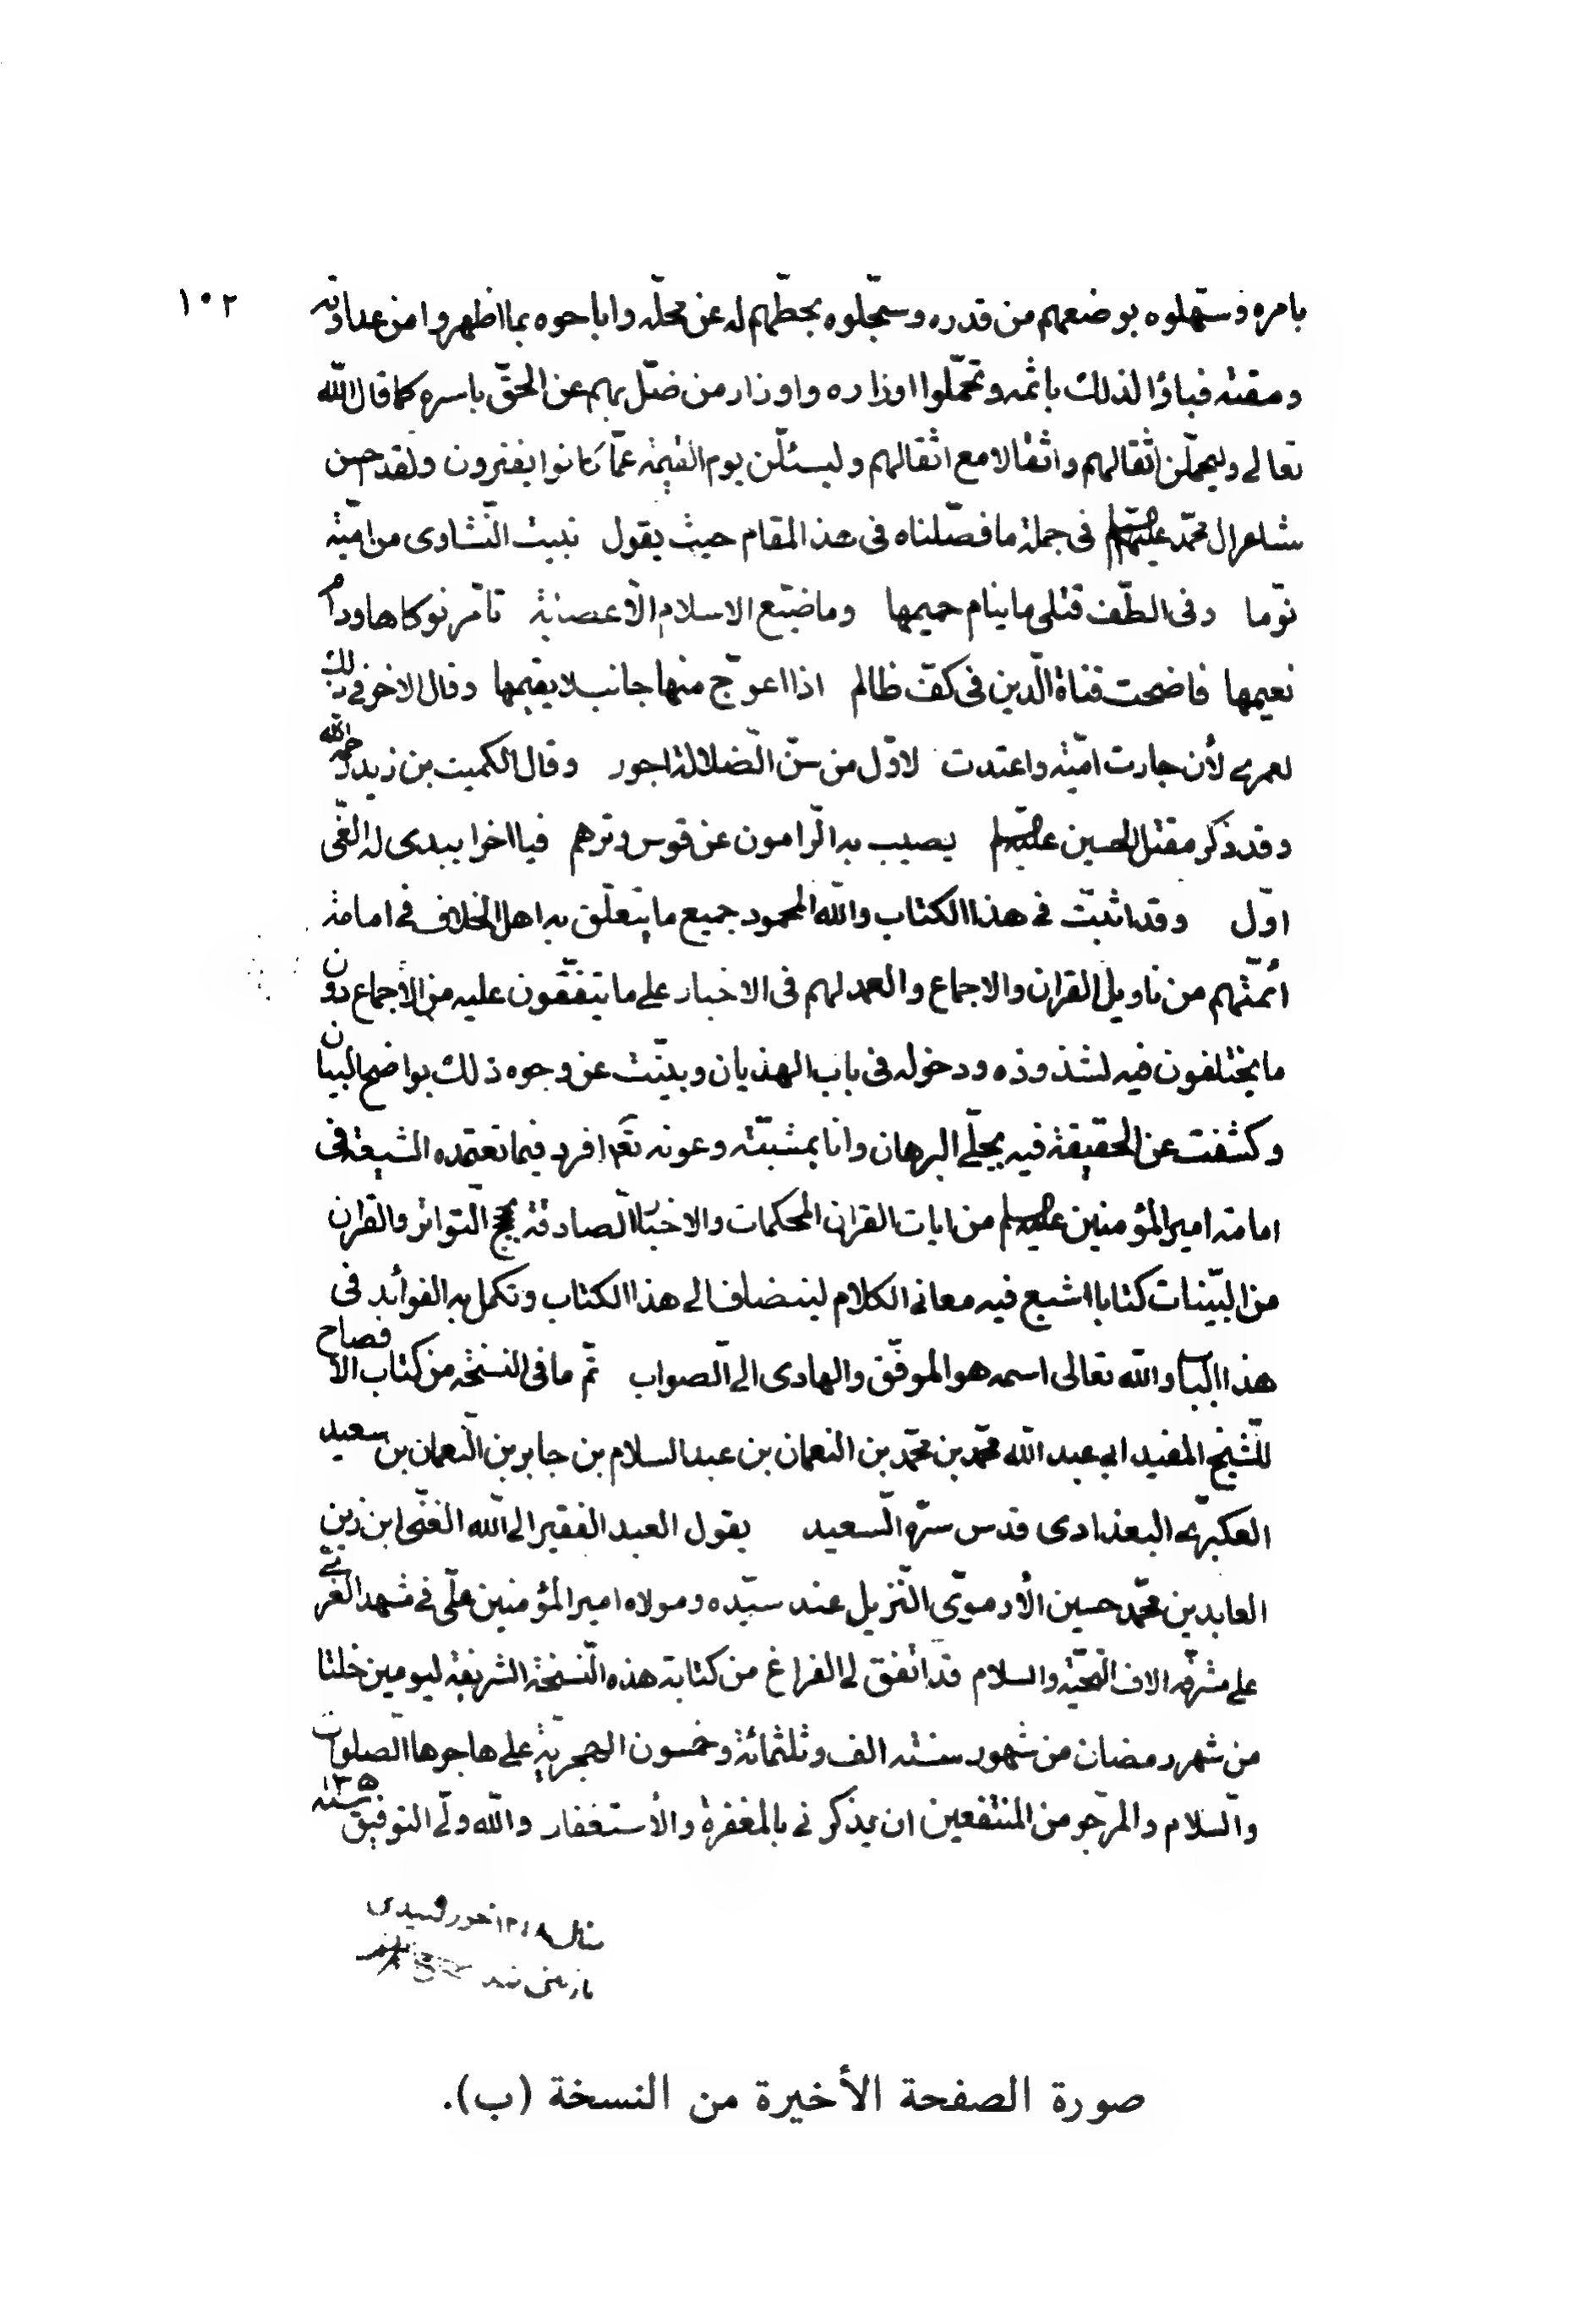 ١٠٢
بامره وسهّلوه بوضعهم من قدره وسجّلوه بحطّهم له عن محلّه واباحوه بما اظهروا من عداوته
ومقته فباؤا لذلك باثمه وتحمّلوا اوزاره واوزار من ضلّ بهم عن الحقّ باسره كما قال الله
تعالى وليحملنّ اثقالهم واثقالا مع اثقالهم وليسئلنّ يوم القيمة عمّا كانوا يفترون ولقد احسن
شاعر ال محمّد عليهم السلام فى جملة ما فصّلناه فى هذا المقام حيث يقول تبيت النّشاوى من اميّة
نوّما وفى الطّف قتلى ما ينام حميمها وما ضيّع الاسلام الّا عصابة تامّر نوكاها ودام
نعيمها فاضحت قناة الدّين فى كفّ ظالم اذا اعوجّ منها جانب لا يقيمها وقال الاخر فى ذلك
لعمرى لأن جارت اميّة واعتدت لاوّل من سنّ الضّلالة اجور وقال الكميت بن زيد رحمه الله
وقد ذكر مقتل الحسين عليه السلام يصيب به الرّامون عن قوس وترهم فيا اخرا يبدى له الغّى
اوّل وقد اثبتّ فى هذا الكتاب والله المحمود جميع ما يتعلّق به اهل الخلاف فى امامة
أئمتّهم من تاويل القران والاجماع والعمد لهم فى الاخبار على ما يتفقّون عليه من الأجماع دون
ما يختلفون فيه لشذوذه ودخوله فى باب الهذيان وبيّنت عن وجوه ذلك بواضح البيان
وكشفت عن الحقيقة فيه بجلّى البرهان وانا بمشيّته وعونه تعم افرد فيما تعتمده الشيعة فى
امامة امير المؤمنين عليه السلام من ايات القران المحكمات والاخبار الصّادقة بحجج التّواتر والقران
من البيّنات كتابا اشبع فيه معانى الكلام لينضاف الى هذا الكتاب وتكمل به الفوائد فى
هذا الباب والله تعالى اسمه هو الموفّق والهادى الى الصّواب تمّ ما فى النسخة من كتاب الافصاح
للشّيخ المفيد ابى عبد الله محمّد بن محمّد بن النعمان بن عبد السلام بن جابر بن النّعمان بن سعيد
العكبرّى البغدادى قدس سرّه السّعيد يقول العبد الفقير الى الله الغنّى ابن زين
العابدين محمّد حسين الأرموّى النّزيل عند سيّده ومولاه امير المؤمنين علّى فى مشهد الغرىّ
على مشرفه الاف التحيّة والسلام قد اتفق لى الفراغ من كتابة هذه النّسخة الشريفة ليومين خلتا
من شهر رمضان من شهور سنة الف وثلثمائة وخمسون الهجريّة على هاجرها الصّلوات
والسّلام والمرّجو من المنتفعين ان يذكرنى بالمغفرة والأستغفار والله ولّى التوفيق سنه ١٣٥
سال خورشيدى
صورة الصفحة الأخيرة من النسخة (ب).